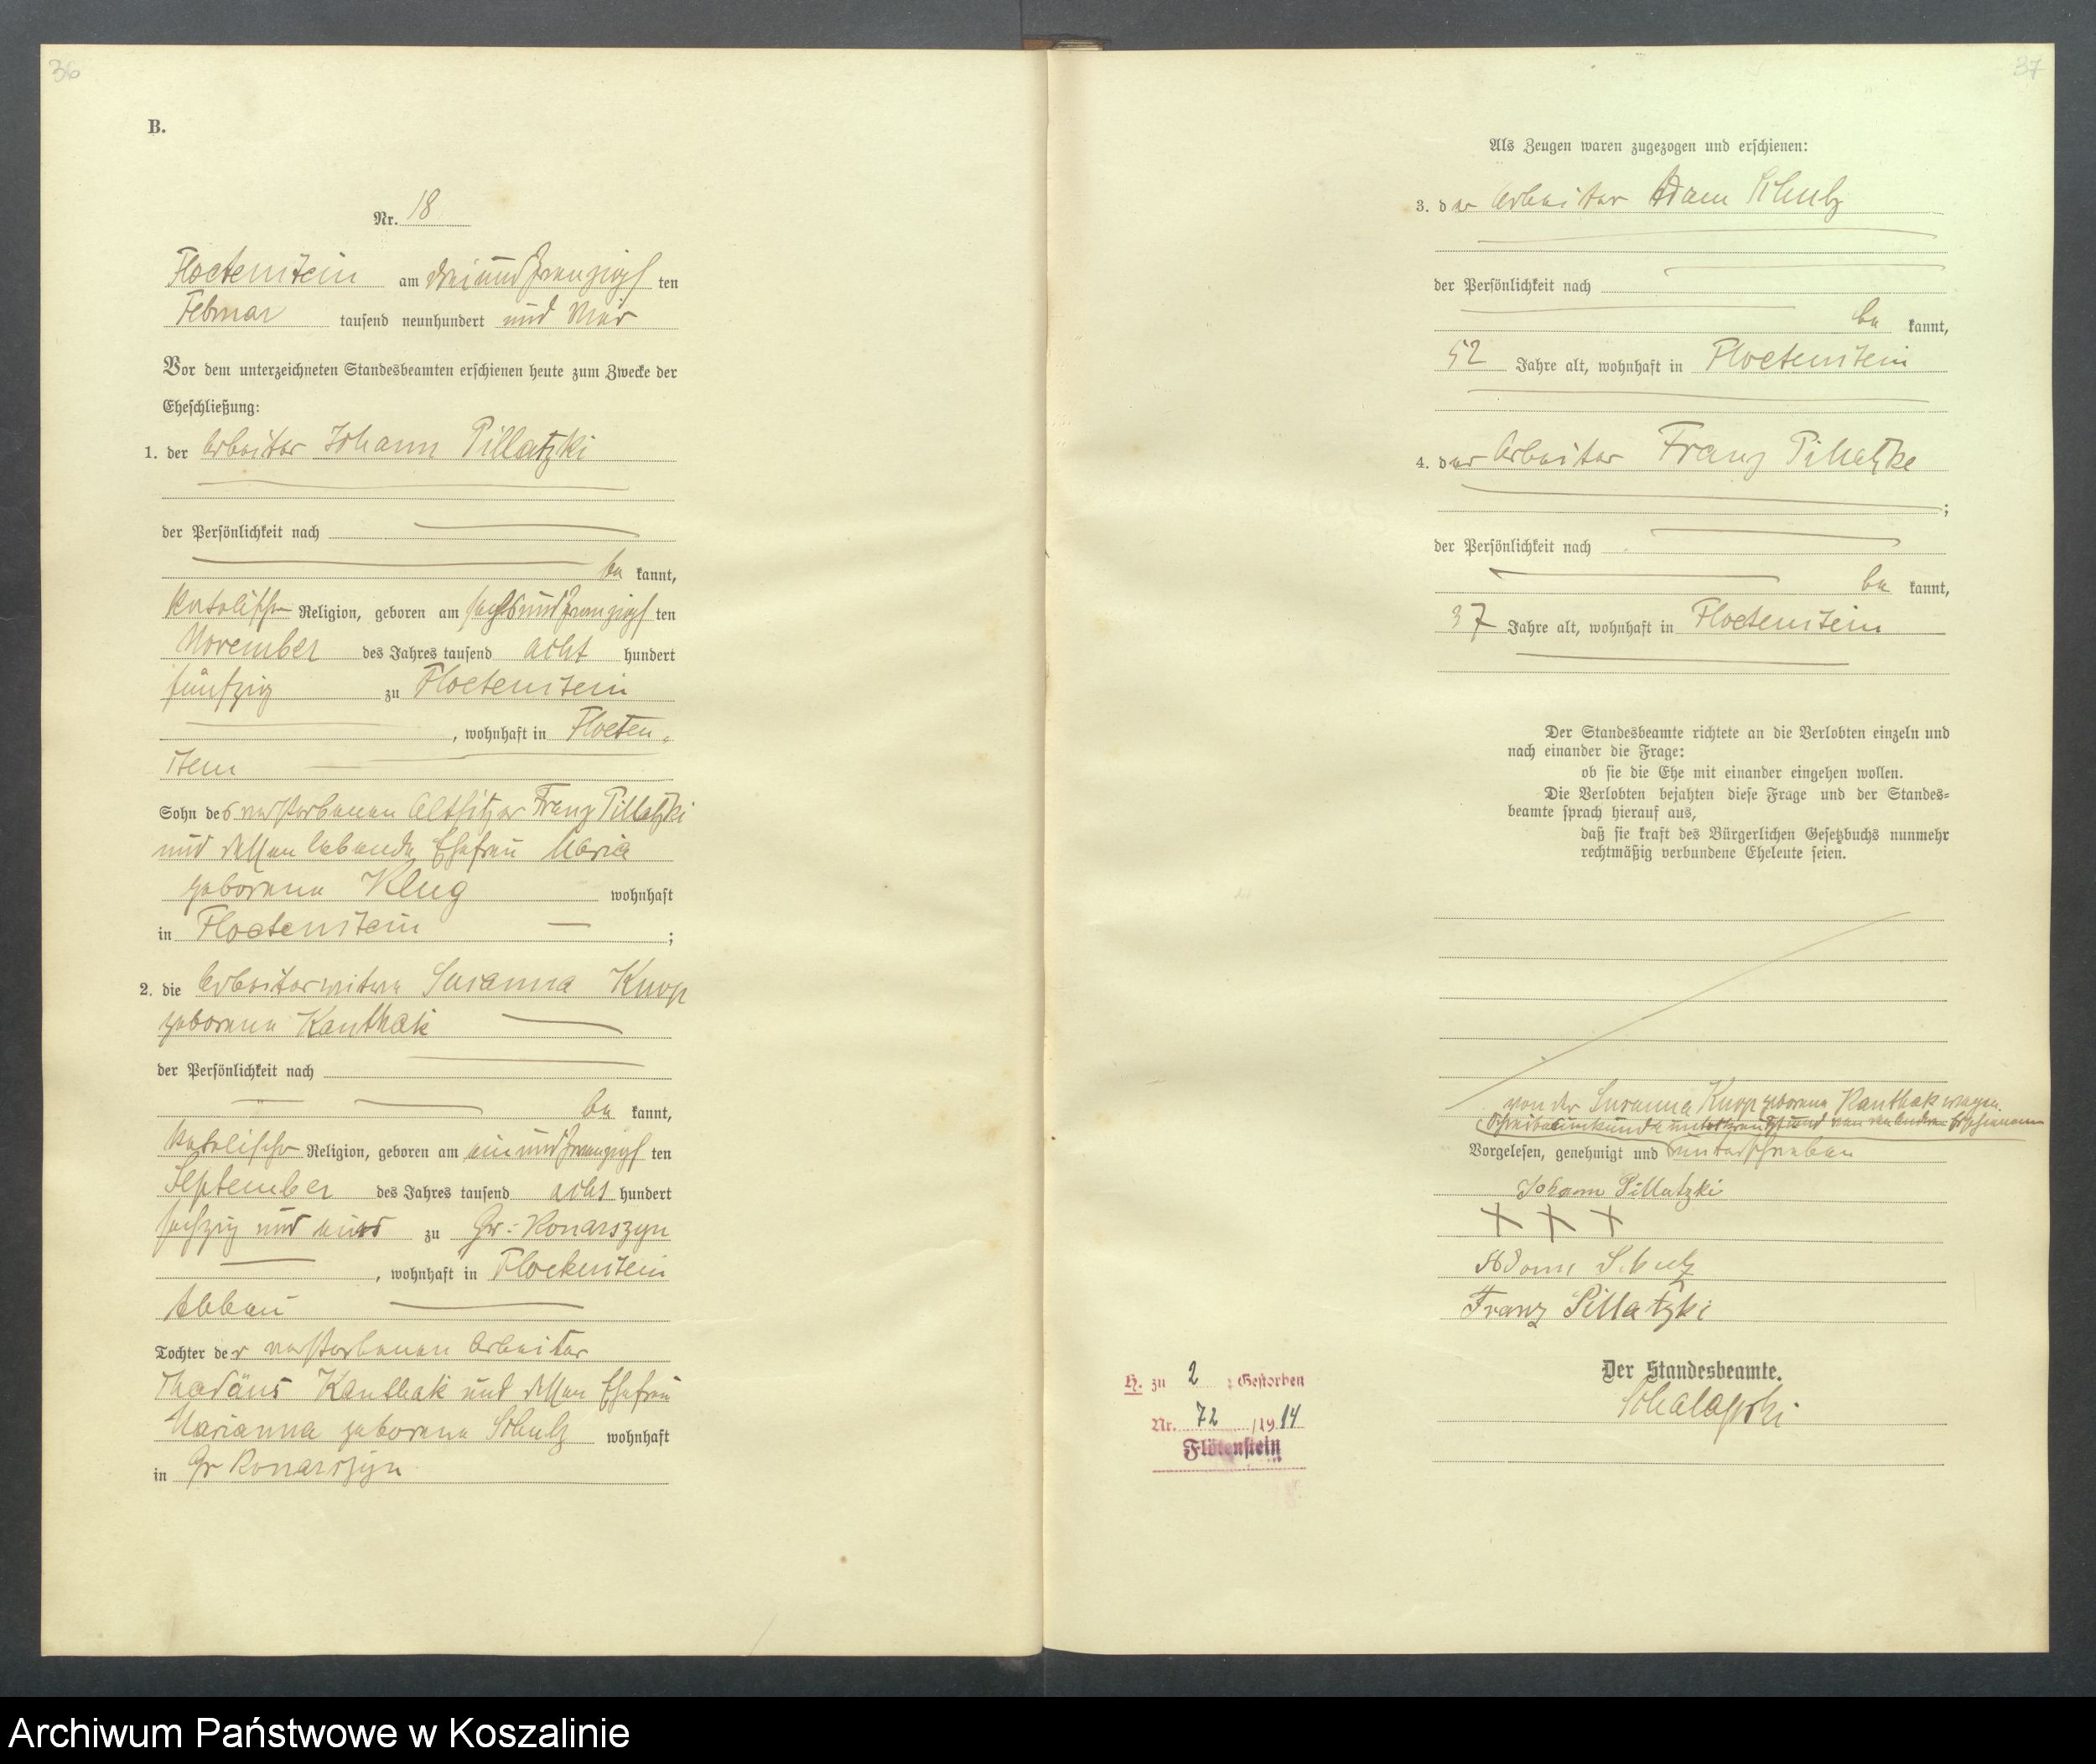 36
B.
Nr. 18
Floetenstein am dreiundzwanzigsten
Februar tausend neunhundert und vier
Vor dem unterzeichneten Standesbeamten erschienen heute zum Zwecke der
Eheschließung:
1. der Arbeiter Johann Pillatzki
der Persönlichkeit nach
be kannt,
katolischer Religion, geboren am sechsundzwanzigsten
November des Jahres tausend acht hundert
fünfzig zu Floetenstein
, wohnhaft in Floeten-
stein
Sohn des verstorbenen Altsitzer Franz Pillatzki
und dessen lebende Ehefrau Maria
geborene Klug wohnhaft
in Floetenstein ;
2. die Arbeiterwitwe Susanna Knop
geborene Kanthak
der Persönlichkeit nach
be kannt,
katolischer Religion, geboren am einundzwanzigsten
September des Jahres tausend acht hundert
sechzig und eins zu Gr. Konarszyn
, wohnhaft in Floetenstein
Abbau
Tochter der verstorbenen Arbeiter
Thadäus Kanthak und dessen Ehefrau
Marianna geborene Schulz wohnhaft
in Gr Konarszyn
37
Als Zeugen waren zugezogen und erschienen:
3. der Arbeiter Adam Schulz
der Persönlichkeit nach
be kannt,
52 Jahre alt, wohnhaft in Floetenstein
4. der Arbeiter Franz Pillatzke
;
der Persönlichkeit nach
be kannt,
37 Jahre alt, wohnhaft in Floetenstein
Der Standesbeamte richtete an die Verlobten einzeln und
nach einander die Frage:
ob sie die Ehe mit einander eingehen wollen.
Die Verlobten bejahten diese Frage und der Standes-
beamte sprach hierauf aus,
daß sie kraft des Bürgerlichen Gesetzbuchs nunmehr
rechtmäßig verbundene Eheleute seien.
von der Susanna Knop geborene Kanthak wegen
Schreibensunkunde unterkreuzt und von den anderen Erschienenen
Vorgelesen, genehmigt und unterschrieben
Johann Pillatzki
+ + +
Adam Schulz
Franz Pillatzki
Der Standesbeamte.
H. zu 2 : Gestorben
Nr. 72 /1914
Flötenstein
Archiwum Państwowe w Koszalinie